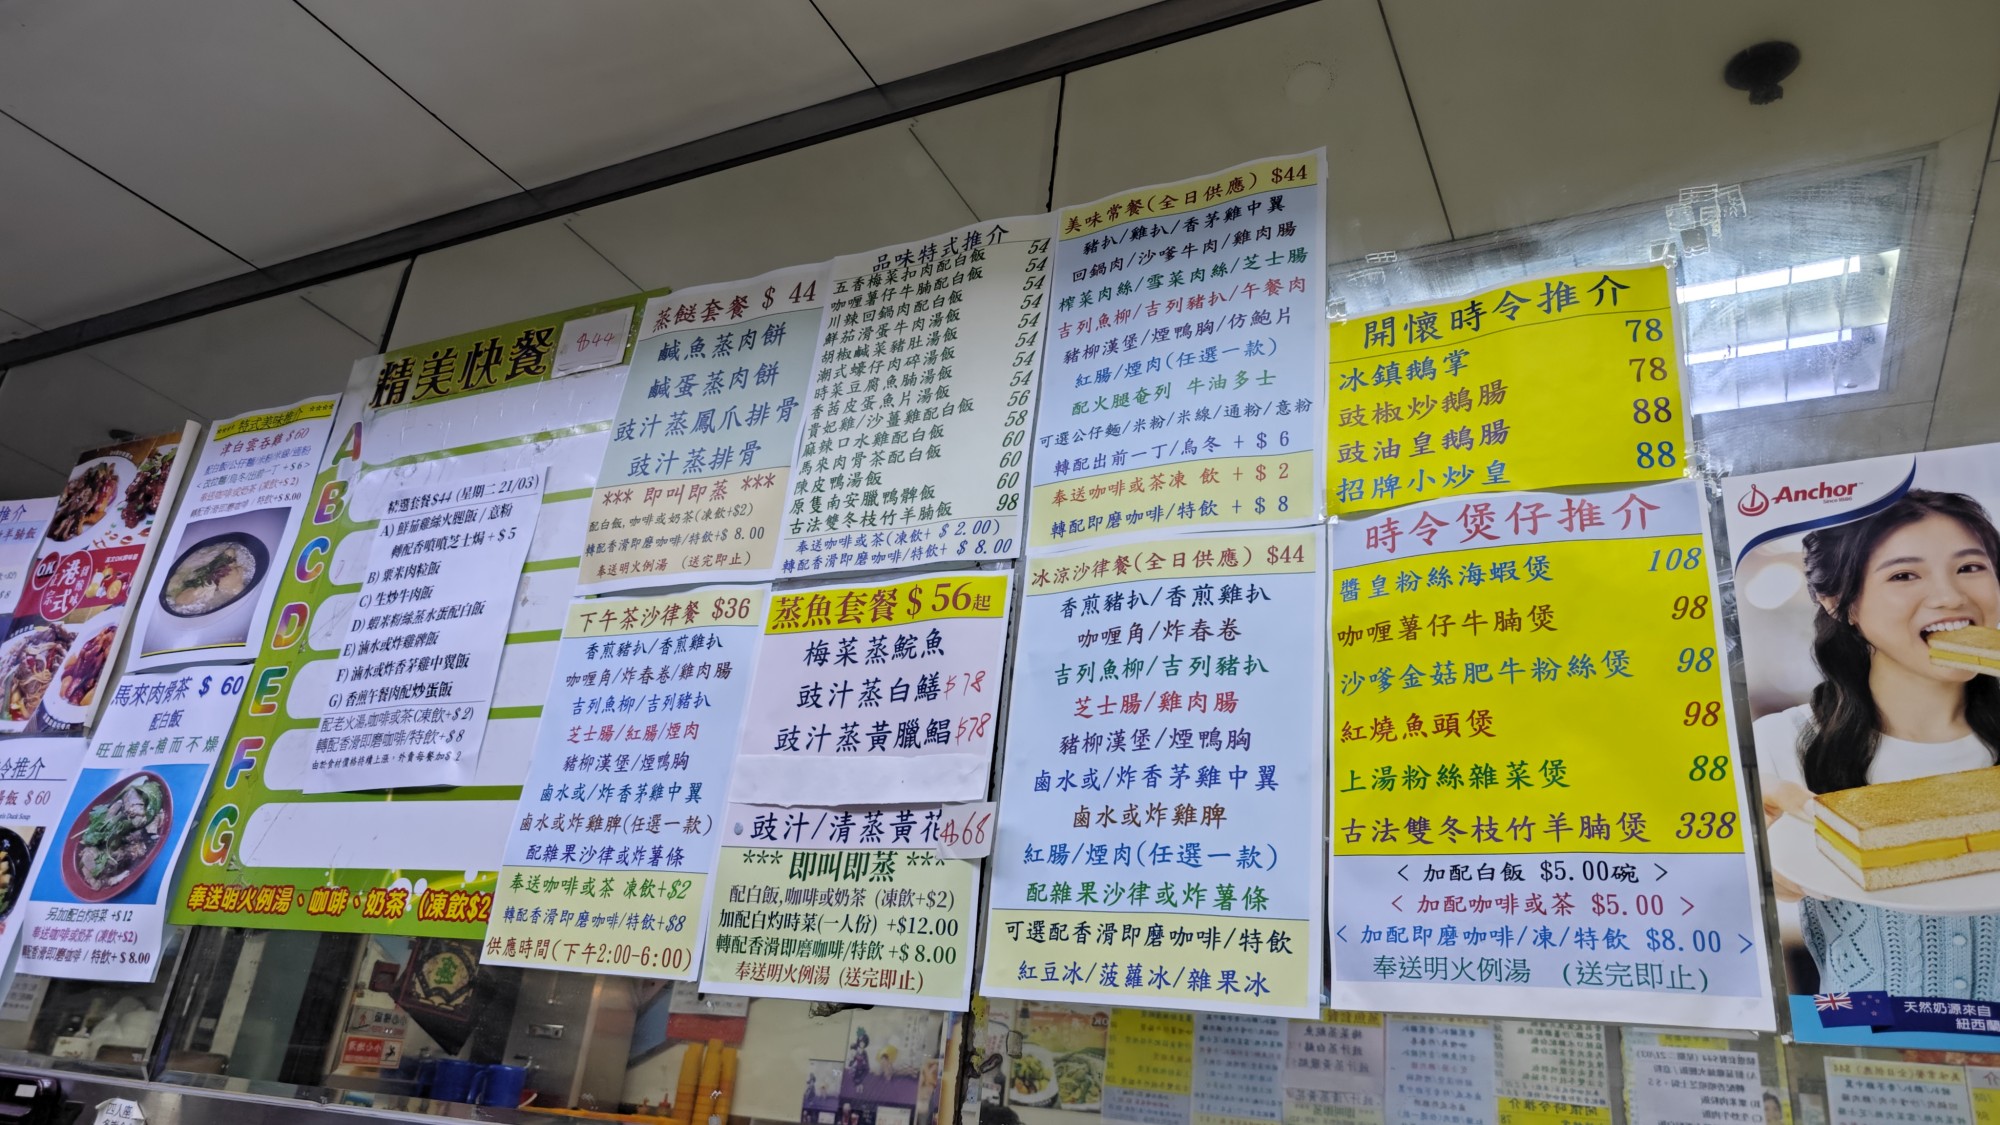 特式美味推介
淨白雲吞雞 $60
馬來肉骨茶 $ 60
配白飯
旺血補氣-補而不燥
另加配白灼時菜 +$12
奉送咖啡或奶茶(凍飲+$2)
轉配香滑即磨咖啡/特飲+$ 8.00
OK
港式
精美快餐
$44
A
B
C
D
E
F
G
精選套餐$44 (星期二 21/03)
A) 鮮茄雞絲火腿飯 / 意粉
轉配香噴噴芝士焗 + $ 5
B) 粟米肉粒飯
C) 生炒牛肉飯
D) 蝦米粉絲蒸水蛋配白飯
E) 滷水或炸雞髀飯
F) 滷水或炸香茅雞中翼飯
G) 香煎午餐肉配炒蛋飯
配老火湯,咖啡或茶(凍飲+$ 2)
轉配香滑即磨咖啡/特飲+$ 8
由於食材價格持續上漲，外賣每餐加$ 2
奉送明火例湯、咖啡、奶茶 (凍飲$2
蒸餸套餐 $ 44
鹹魚蒸肉餅
鹹蛋蒸肉餅
豉汁蒸鳳爪排骨
豉汁蒸排骨
*** 即叫即蒸 ***
配白飯,咖啡或奶茶(凍飲+$2)
轉配香滑即磨咖啡/特飲+$ 8.00
奉送明火例湯 (送完即止)
品味特式推介
五香梅菜扣肉配白飯 54
咖喱薯仔牛腩配白飯 54
川辣回鍋肉配白飯 54
鮮茄滑蛋牛肉湯飯 54
胡椒鹹菜豬肚湯飯 54
潮式蠔仔肉碎湯飯 54
時菜豆腐魚腩湯飯 54
香茜皮蛋魚片湯飯 54
貴妃雞/沙薑雞配白飯 56
麻辣口水雞配白飯 58
馬來肉骨茶配白飯 60
陳皮鴨湯飯 60
原隻南安臘鴨髀飯 60
古法雙冬枝竹羊腩飯 98
奉送咖啡或茶(凍飲+ $ 2.00)
轉配香滑即磨咖啡/特飲+ $ 8.00
美味常餐(全日供應) $44
豬扒/雞扒/香茅雞中翼
回鍋肉/沙爹牛肉/雞肉腸
榨菜肉絲/雪菜肉絲/芝士腸
吉列魚柳/吉列豬扒/午餐肉
豬柳漢堡/煙鴨胸/仿鮑片
紅腸/煙肉(任選一款)
配火腿奄列 牛油多士
可選公仔麵/米粉/米線/通粉/意粉
轉配出前一丁/烏冬 + $ 6
奉送咖啡或茶凍 飲 + $ 2
轉配即磨咖啡/特飲 + $ 8
開懷時令推介
冰鎮鵝掌 78
豉椒炒鵝腸 78
豉油皇鵝腸 88
招牌小炒皇 88
下午茶沙律餐 $36
香煎豬扒/香煎雞扒
咖喱角/炸春卷/雞肉腸
吉列魚柳/吉列豬扒
芝士腸/紅腸/煙肉
豬柳漢堡/煙鴨胸
鹵水或/炸香茅雞中翼
鹵水或炸雞脾(任選一款)
配雜果沙律或炸薯條
奉送咖啡或茶 凍飲+$2
轉配香滑即磨咖啡/特飲+$8
供應時間(下午2:00-6:00)
蒸魚套餐 $ 56起
梅菜蒸鯇魚
豉汁蒸白鱔 $78
豉汁蒸黃臘鯧 $78
豉汁/清蒸黃花 $68
*** 即叫即蒸 ***
配白飯,咖啡或奶茶 (凍飲+$2)
加配白灼時菜(一人份) +$12.00
轉配香滑即磨咖啡/特飲 +$ 8.00
奉送明火例湯 (送完即止)
冰涼沙律餐(全日供應) $44
香煎豬扒/香煎雞扒
咖喱角/炸春卷
吉列魚柳/吉列豬扒
芝士腸/雞肉腸
豬柳漢堡/煙鴨胸
鹵水或/炸香茅雞中翼
鹵水或炸雞脾
紅腸/煙肉(任選一款)
配雜果沙律或炸薯條
可選配香滑即磨咖啡/特飲
紅豆冰/菠蘿冰/雜果冰
時令煲仔推介
醬皇粉絲海蝦煲 108
咖喱薯仔牛腩煲 98
沙嗲金菇肥牛粉絲煲 98
紅燒魚頭煲 98
上湯粉絲雜菜煲 88
古法雙冬枝竹羊腩煲 338
< 加配白飯 $5.00碗 >
< 加配咖啡或茶 $5.00 >
< 加配即磨咖啡/凍/特飲 $8.00 >
奉送明火例湯 (送完即止)
Anchor
天然奶源來自
紐西蘭